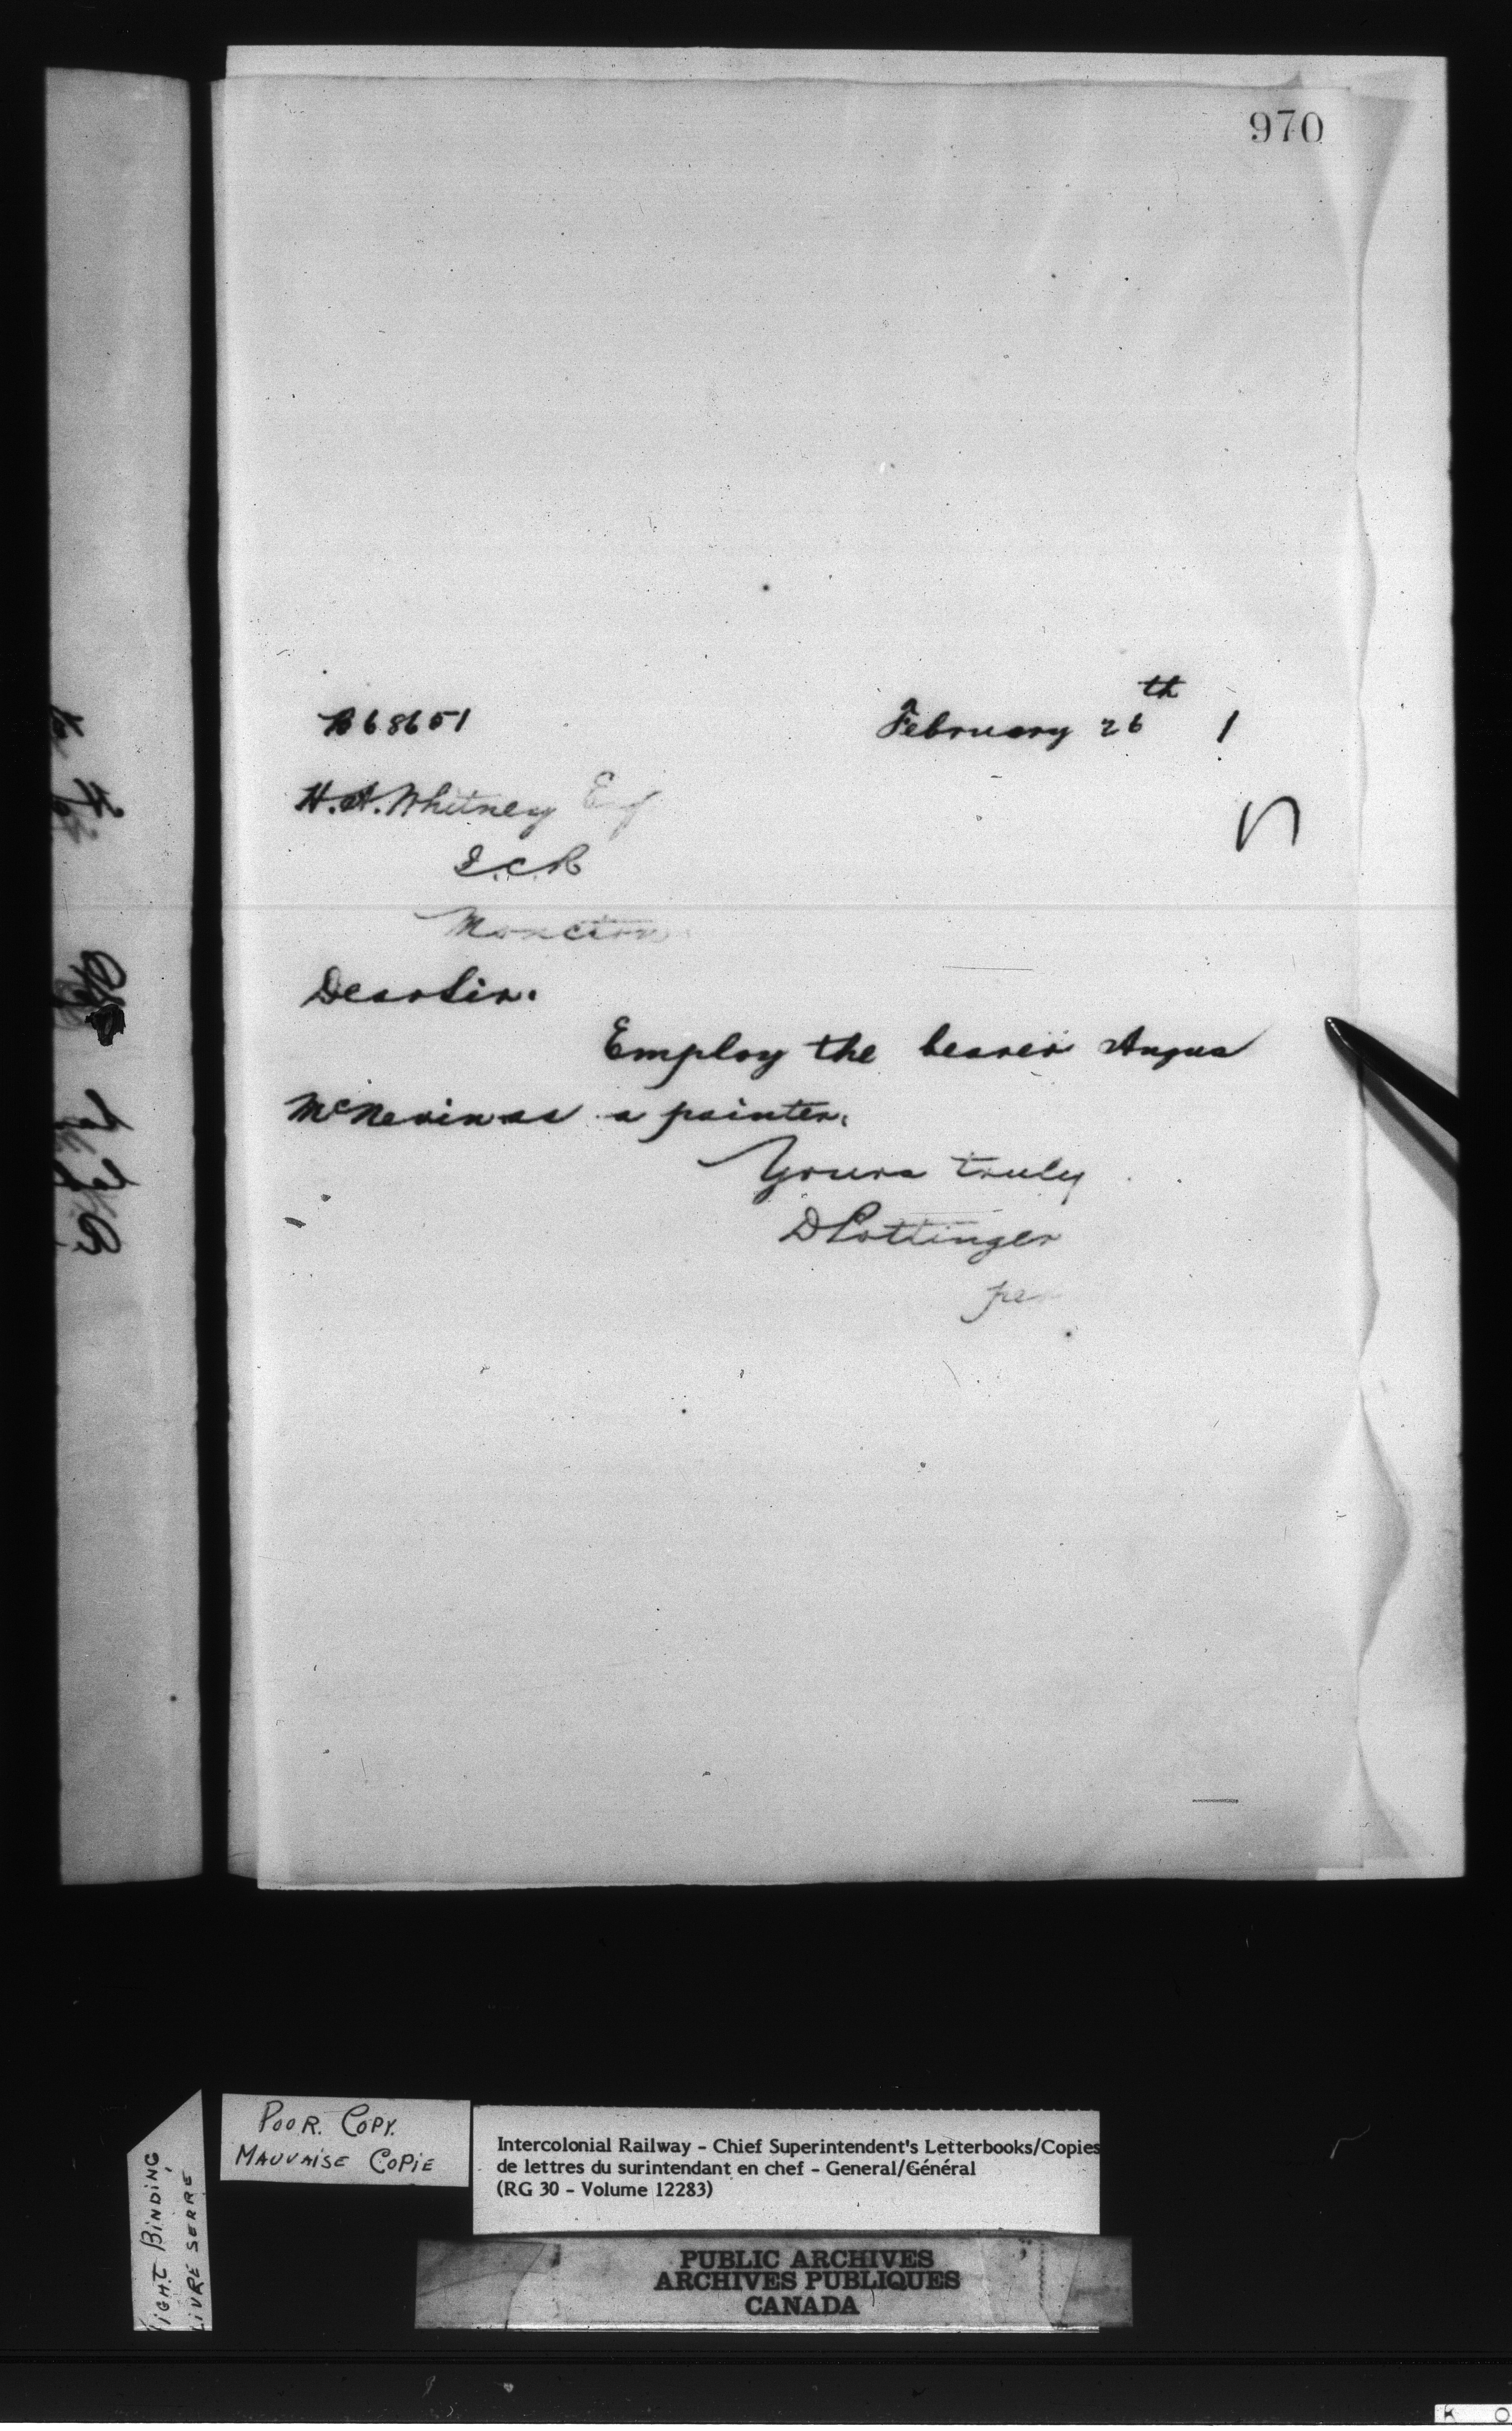 970
B68651
February 26th 1
H. A. Whitney Esq
I.C.R
Moncton
Dear Sir.
Employ the bearer Angus
McNevin as a painter.
Yours truly
D Pottinger
per
POOR. COPY.
MAUVAISE COPIE
TIGHT BINDING
LIVRE SERRE
Intercolonial Railway - Chief Superintendent's Letterbooks/Copies
de lettres du surintendant en chef - General/Général
(RG 30 - Volume 12283)
PUBLIC ARCHIVES
ARCHIVES PUBLIQUES
CANADA